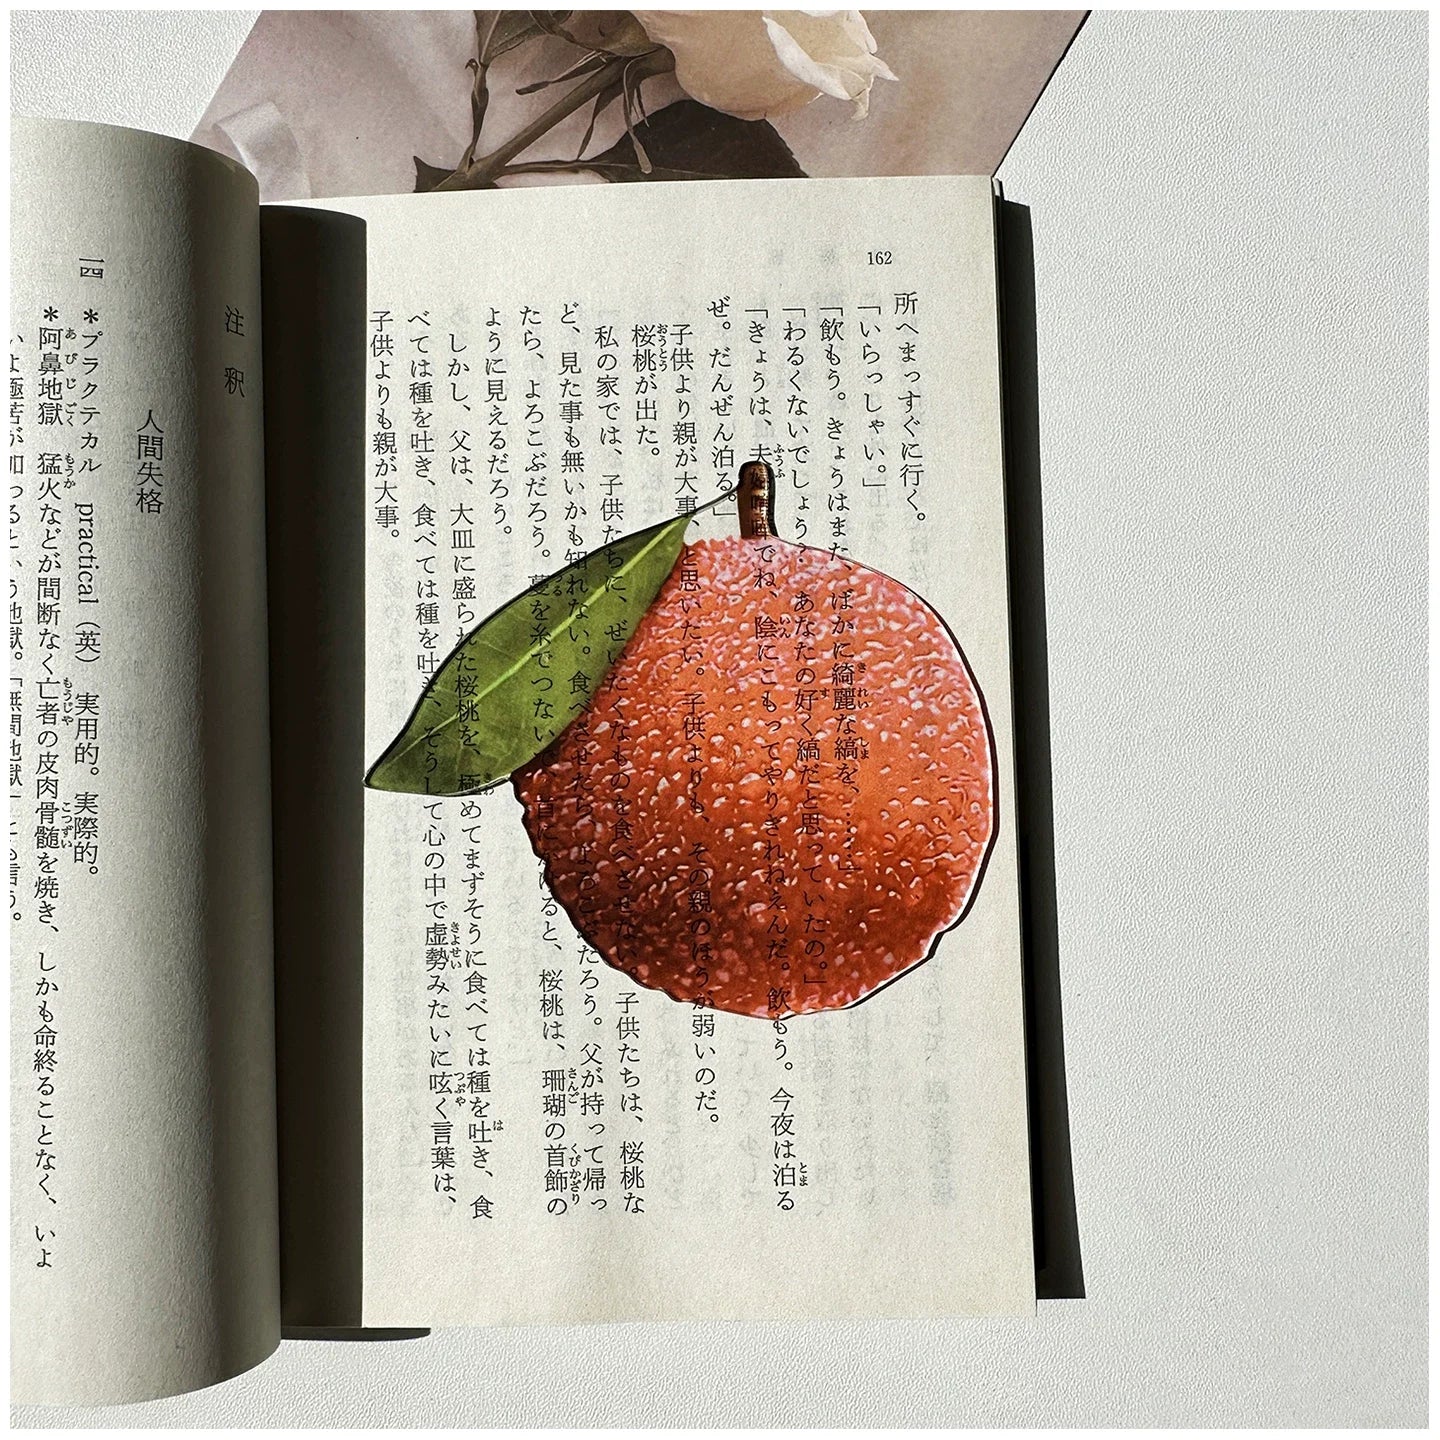 162
所へまっすぐに行く。
「いらっしゃい。」
「飲もう。きょうはまた、ばかに綺麗な縞を、……」
「わるくないでしょう？　あなたの好く縞だと思っていたの。」
「きょうは、夫婦喧嘩でね、陰にこもってやりきれねえんだ。飲もう。今夜は泊る
ぜ。だんぜん泊る。」
子供より親が大事、と思いたい。子供よりも、その親のほうが弱いのだ。
桜桃が出た。
私の家では、子供たちに、ぜいたくなものを食べさせない。子供たちは、桜桃な
ど、見た事も無いかも知れない。食べさせたら、よろこぶだろう。父が持って帰っ
たら、よろこぶだろう。蔓を糸でつないで、首にかけると、桜桃は、珊瑚の首飾の
ように見えるだろう。
しかし、父は、大皿に盛られた桜桃を、極めてまずそうに食べては種を吐き、食
べては種を吐き、食べては種を吐き、そうして心の中で虚勢みたいに呟く言葉は、
子供よりも親が大事。
注釈
人間失格
一四　＊プラクテカル　practical（英）　実用的。実際的。
＊阿鼻地獄　猛火などが間断なく亡者の皮肉骨髄を焼き、しかも命終ることなく、いよ